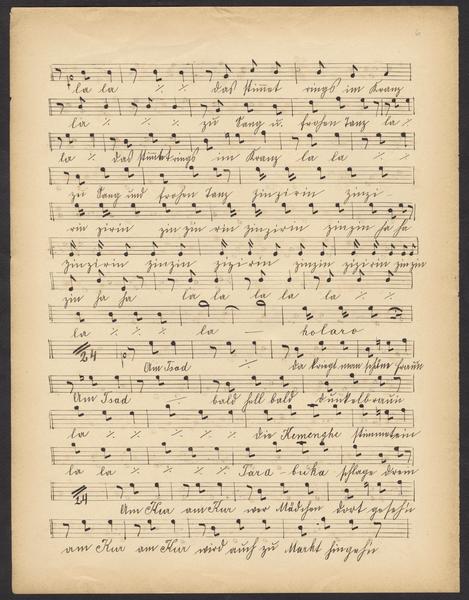 6
la la ·/. ·/. das stimmt rings im Kranz
la ·/. ·/. ·/. zu Sang u. frohen Tanz la ·/.
la ·/. das stimmt rings im Kranz la la ·/. ·/.
zu Sang und frohen Tanz zinzirin zinzi
rin zirin zin zin rin zinzirin zinzin ha ha
zinzirin zinzin zizirin zinzin zizirin zinzin
zin ha ha la la la la la ·/. ·/.
la ·/. ·/. ·/. la — holaro
24 Am Tsad ·/. da kriegt man schöne Fraun
Am Tsad ·/. bald hell bald dunkelbraun
la ·/. ·/. ·/. ·/. ·/. die Kemenghe stimmet ein
la la ·/. ·/. ·/. ·/. Tara buka schlage drein
24 Am Kur am Kur wer Mädchen dort geseh'n
am Kur am Kur wird auch zu Markt hingeh'n